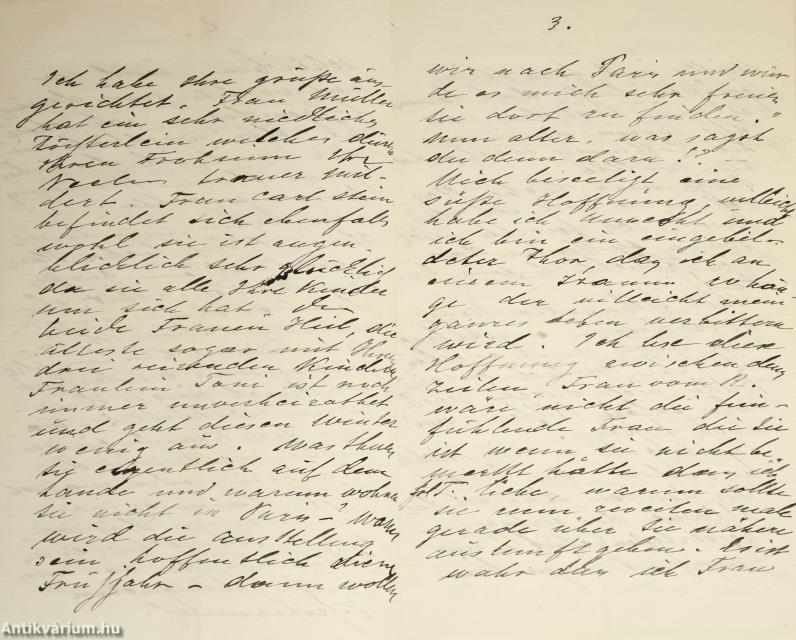 Ich habe Ihre grüße aus
gerichtet. Frau Müller
hat ein sehr niedliches
Töchterlein welches durch
Ihren Frohsinn Ihr
trauer mil-
dert. Frau Carl Stein
befindet sich ebenfalls
wohl sie ist augen
blicklich sehr glücklich
da sie alle Ihre Kinder
um sich hat. Die
beide Frauen Heil, die
älteste sogar mit Ihren
drei reizenden Kindern
Fräulein Toni ist noch
immer unverheirathet
und geht diesen Winter
wenig aus. Was thun
sie eigentlich auf dem
Lande und warum wohnen
sie nicht in Paris - Wann
wird die ausstellung
sein hoffentlich dieses
Frühjahr - dann wollen
3.
wir nach Paris und wür
de es mich sehr freuen
sie dort zu finden."
Nun alter, was sagst
du denn dazu!? -
Mich beseeligt eine
süße Hoffnung, vielleicht
habe ich Unrecht und
ich bin ein eingebil-
deter Thor, daß ich an
einem Traume hän
ge der vielleicht mein
ganzes Leben verbittern
wird. Ich lese diese
Hoffnung zwischen den
Zeilen, Frau vom H.
wäre nicht die fein-
fühlende Frau die sie
ist wenn sie nicht be
merkt hätte daß ich
T. liebe, warum sollte
sie zum zweiten male
gerade über sie nähere
auskunft geben. Es ist
wahr daß ich Frau
Antikvárium.hu